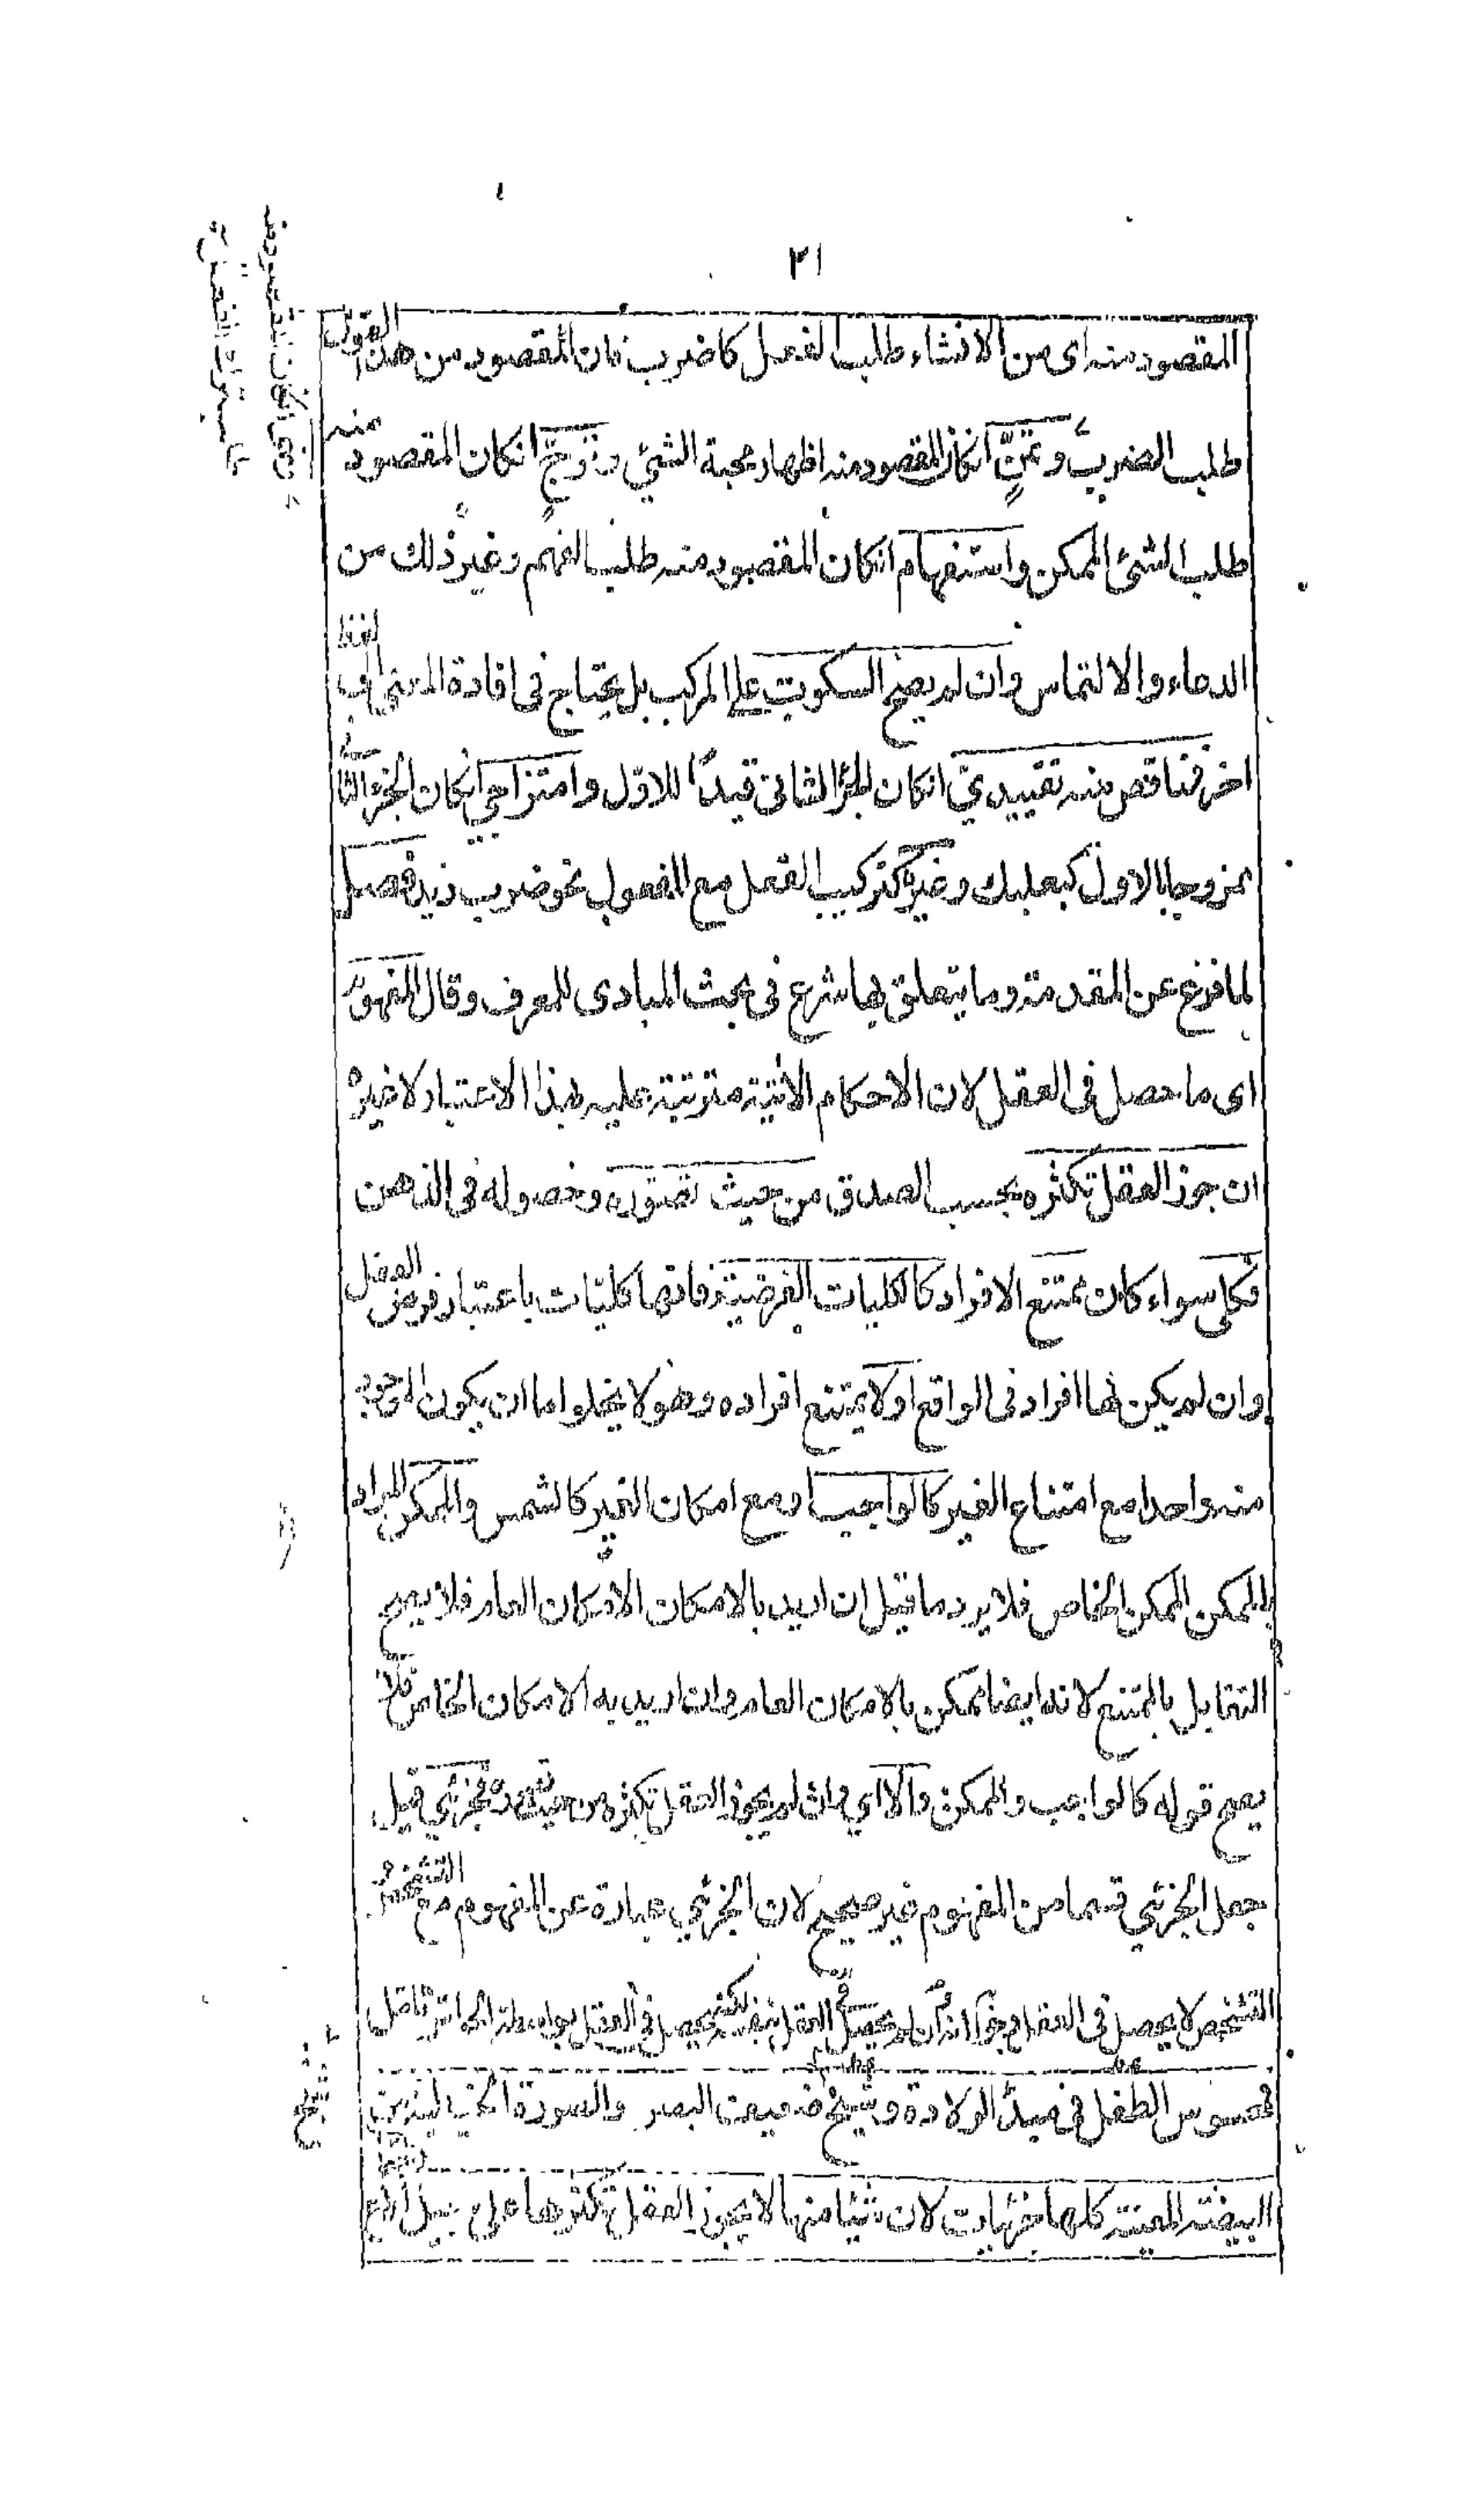 ٢١
المقصود منه اى من الانشاء طلب الفعل كاضرب فان المقصود من هذا القول
طلب الضرب وتمنٍّ انكان المقصود منه اظهار محبة الشئ وترجٍّ انكان المقصود منه
طلب الشئ الممكن واستفهام انكان المقصود منه طلب الفهم وغير ذلك من
الدعاء والالتماس وان لم يصح السكوت على المركب بل يحتاج فى افادة المعنى الى لفظ
اخر فناقص منه تقييدى انكان الجزء الثانى قيدًا للاوّل وامتزاجى انكان الجزء الثانى
ممزوجا بالاول كبعلبك وغيره كتركيب الفعل مع المفعول نحو ضرب زيد فصل
لما فرغ عن المقدمة وما يتعلق بها شرع فى بحث المبادى للمعرف وقال المفهوم
اى ما حصل فى العقل لان الاحكام الاتية مترتبة عليه بهذا الاعتبار لا غير
ان جوز العقل تكثره بحسب الصدق من حيث تصوره وحصوله فى الذهن
فكلى سواء كان ممتنع الافراد كالكليات الفرضية فانها كليّات باعتبار فرض العقل
وان لم يكن لها افراد فى الواقع اولا يمتنع افراده وهو لا يخلوا اما ان يكون الموجود
منه واحدا مع امتناع الغير كالواجب او مع امكان الغير كالشمس والممكن المراد
بالممكن الممكن الخاص فلا يرد ما قيل ان اريد بالامكان الامكان العام فلا يصح
التقابل بالممتنع لانه ايضا ممكن بالامكان العام وان اريد به الامكان الخاص فلا
يصح قوله كالواجب والممكن والا اى وان لم يجوز العقل تكثره من حيث تصوره فجزئى قيل
جعل الجزئى قسما من المفهوم غير صحيح لان الجزئى عبارة عن المفهوم مع التشخص
التشخص لا يحصل فى العقل لم يحصل فى العقل بنفسه لكنه يحصل فى العقل بواسطة الحواس
فمحسوس الطفل فى مبدأ الولادة وشيخ ضعيف البصر والصورة الخيالية من
البيضة المعينة كلها جزئيات لان شيئا منها لا يجوز العقل تكثرها على سبيل